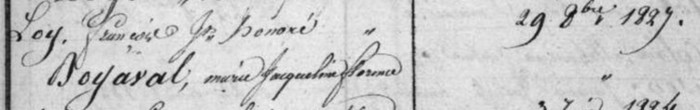 Loy, François Jh honoré " 29 8bre 1827.
Boyaval, marie Jacqueline florence "